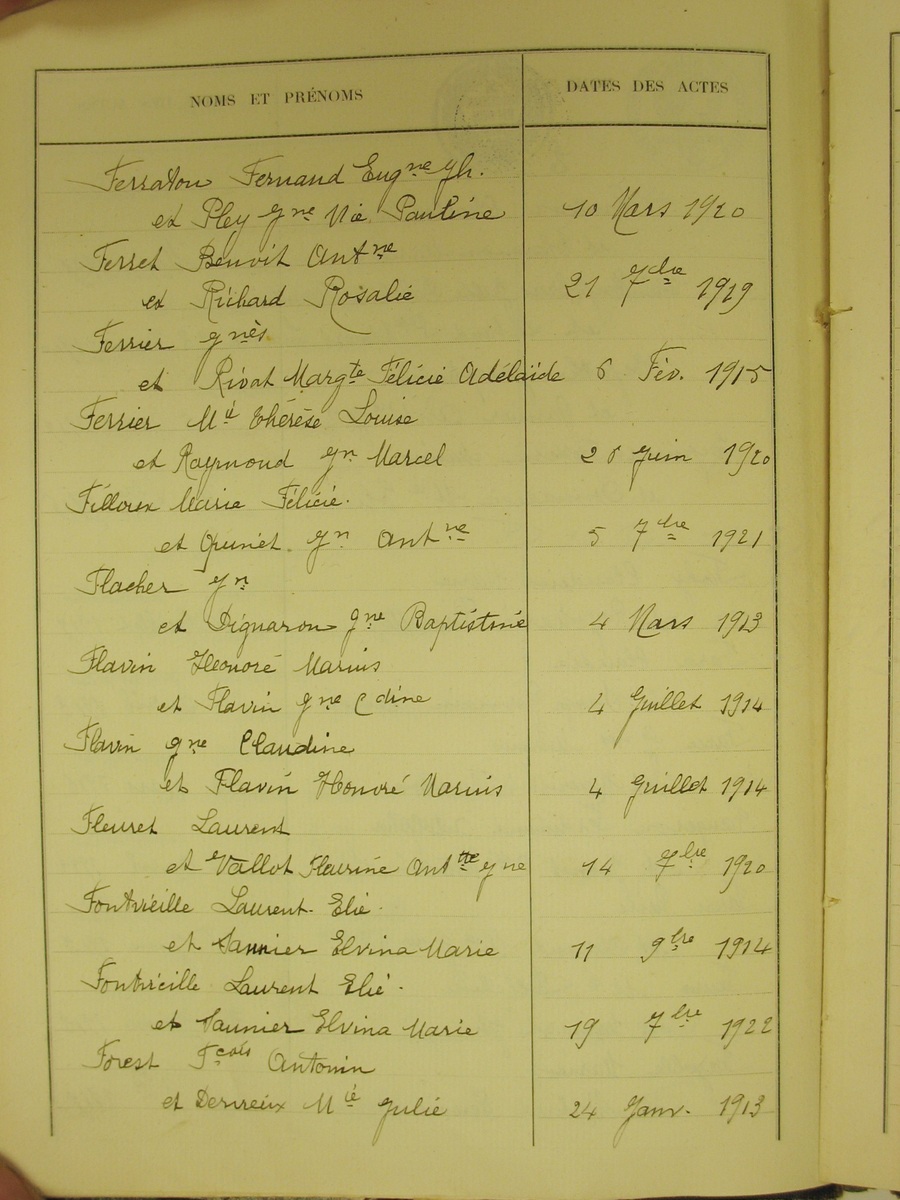 NOMS ET PRÉNOMS DATES DES ACTES
Ferraton Fernand Eugne Jh.
et Pley Jne Vie Pauline 10 Mars 1920
Ferret Benoit Antne
et Richard Rosalie 21 7bre 1919
Ferrier Jnès
et Rivat Margte Félicie Adélaïde 6 Fév. 1915
Ferrier Mie Thérèse Louise
et Raymond Jn Marcel 26 Juin 1920
Filloux Marie Félicie.
et Jn Antne 5 7bre 1921
Flacher Jn
et Dignaron Jne Baptistine 4 Mars 1913
Flavin Honoré Marius
et Flavin Jne Cdine 4 Juillet 1914
Flavin Jne Claudine
et Flavin Honoré Marius 4 Juillet 1914
Fleuret Laurent
et Vallot Fleurine Antne Jne 14 7bre 1920
Fontvieille Laurent Elie.
et Saunier Elvina Marie 11 9bre 1914
Fontvieille Laurent Elie.
et Saunier Elvina Marie 19 7bre 1922
Forest Fcois Antonin
et Mie Julie 24 Janv. 1913